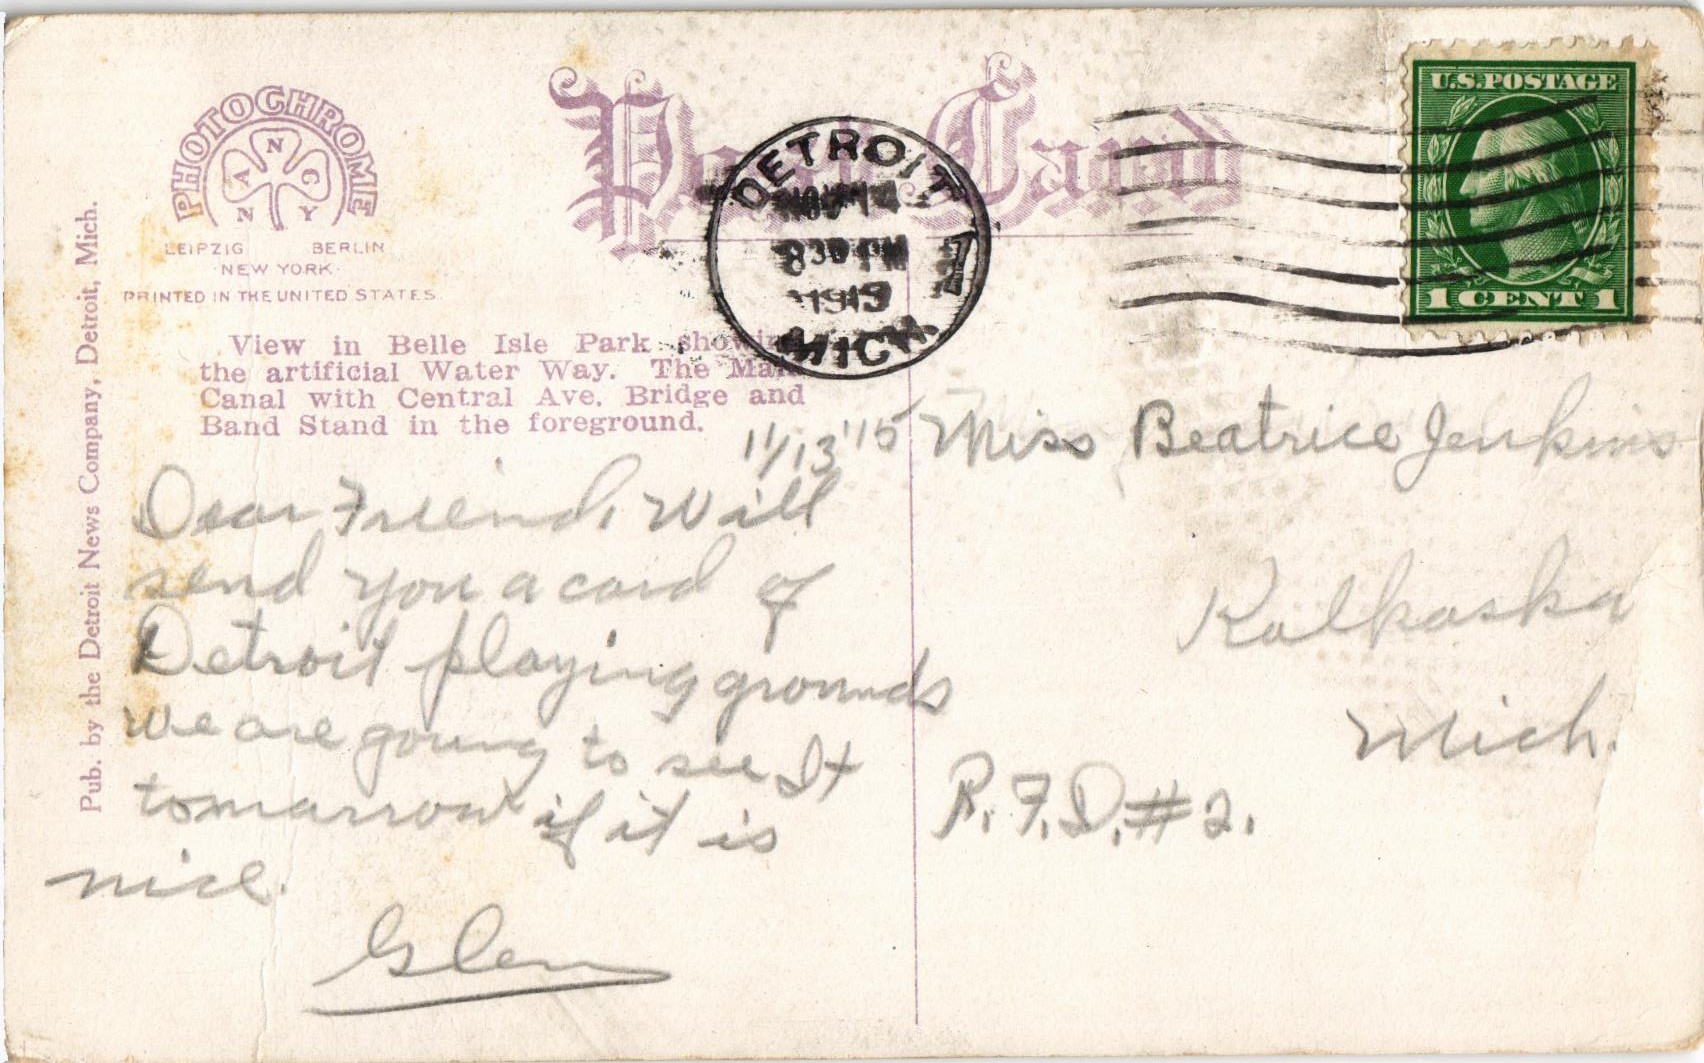 PHOTOCHROME
N
A C
N Y
LEIPZIG BERLIN
·NEW YORK·
PRINTED IN THE UNITED STATES
Pub. by the Detroit News Company, Detroit, Mich.
View in Belle Isle Park showing
the artificial Water Way. The Main
Canal with Central Ave. Bridge and
Band Stand in the foreground.
Post Card
DETROIT
NOV 14
830 PM
MICH.
U.S. POSTAGE
1 CENT 1
11/13 '15
Dear Friend, Will
send you a card of
Detroit playing grounds
we are going to see It
tomarrow if it is
nice.
Glen
Miss Beatrice Jenkins
Kalkaska
Mich.
R.F.D.#2.